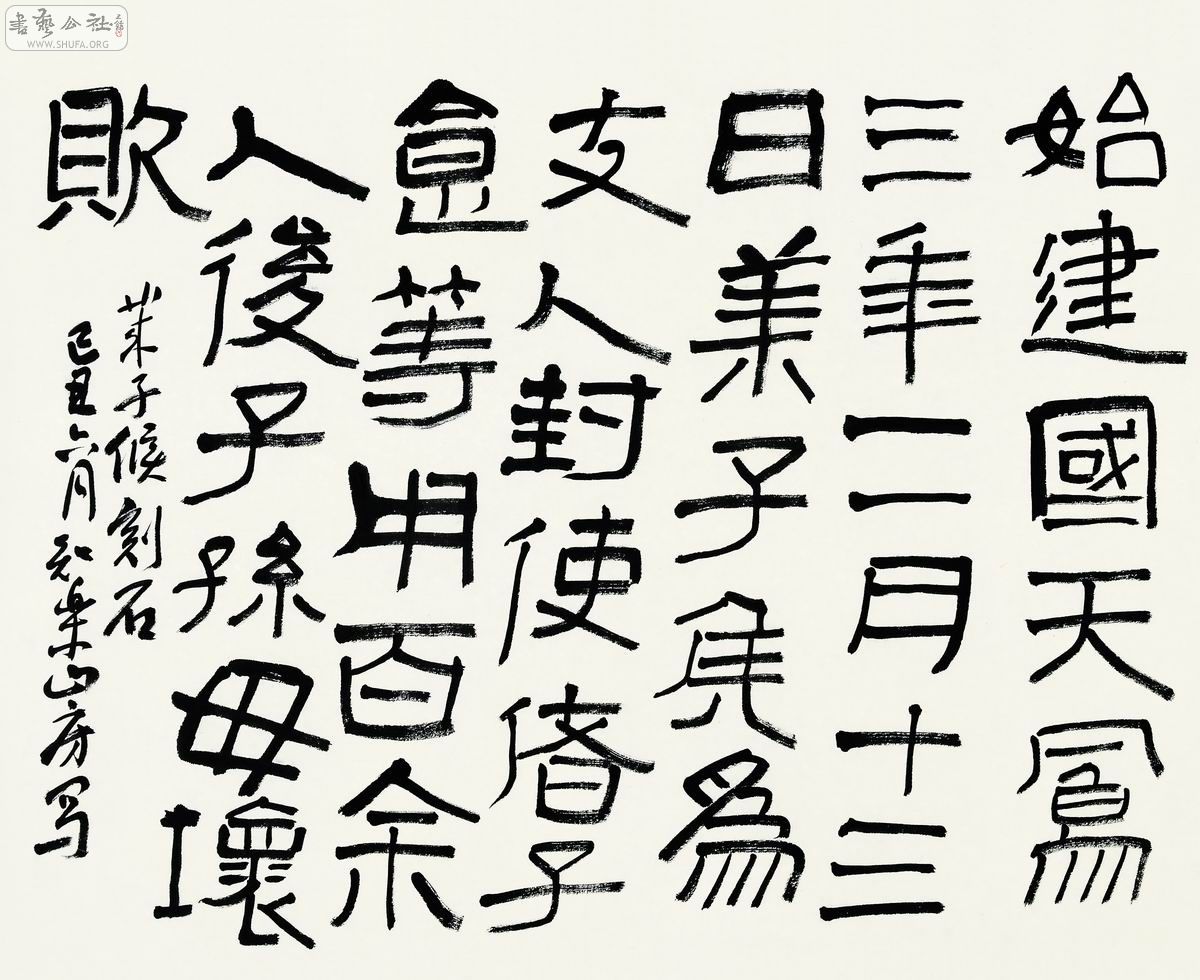 始建國天鳳
三年二月十三
日莱子矦為
支人封使偖子
食等用百余
人後子孫毋壞
敗
莱子候刻石
己丑六月知楽山房写
書藝公社
WWW.SHUFA.ORG